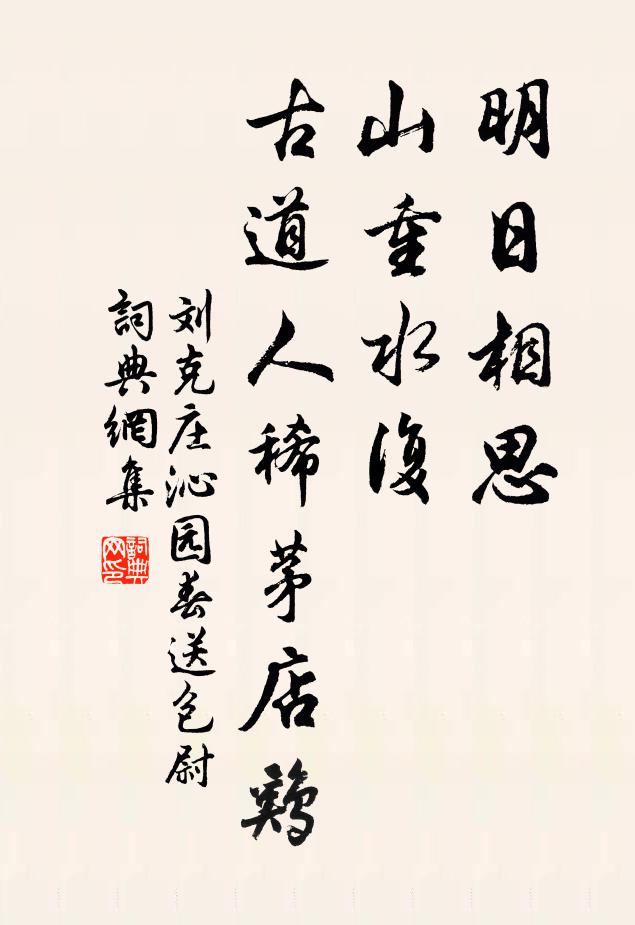 明日相思
山重水復
古道人稀茅店鷄
刘克庄沁园春送包尉
詞典網集
詞典網印